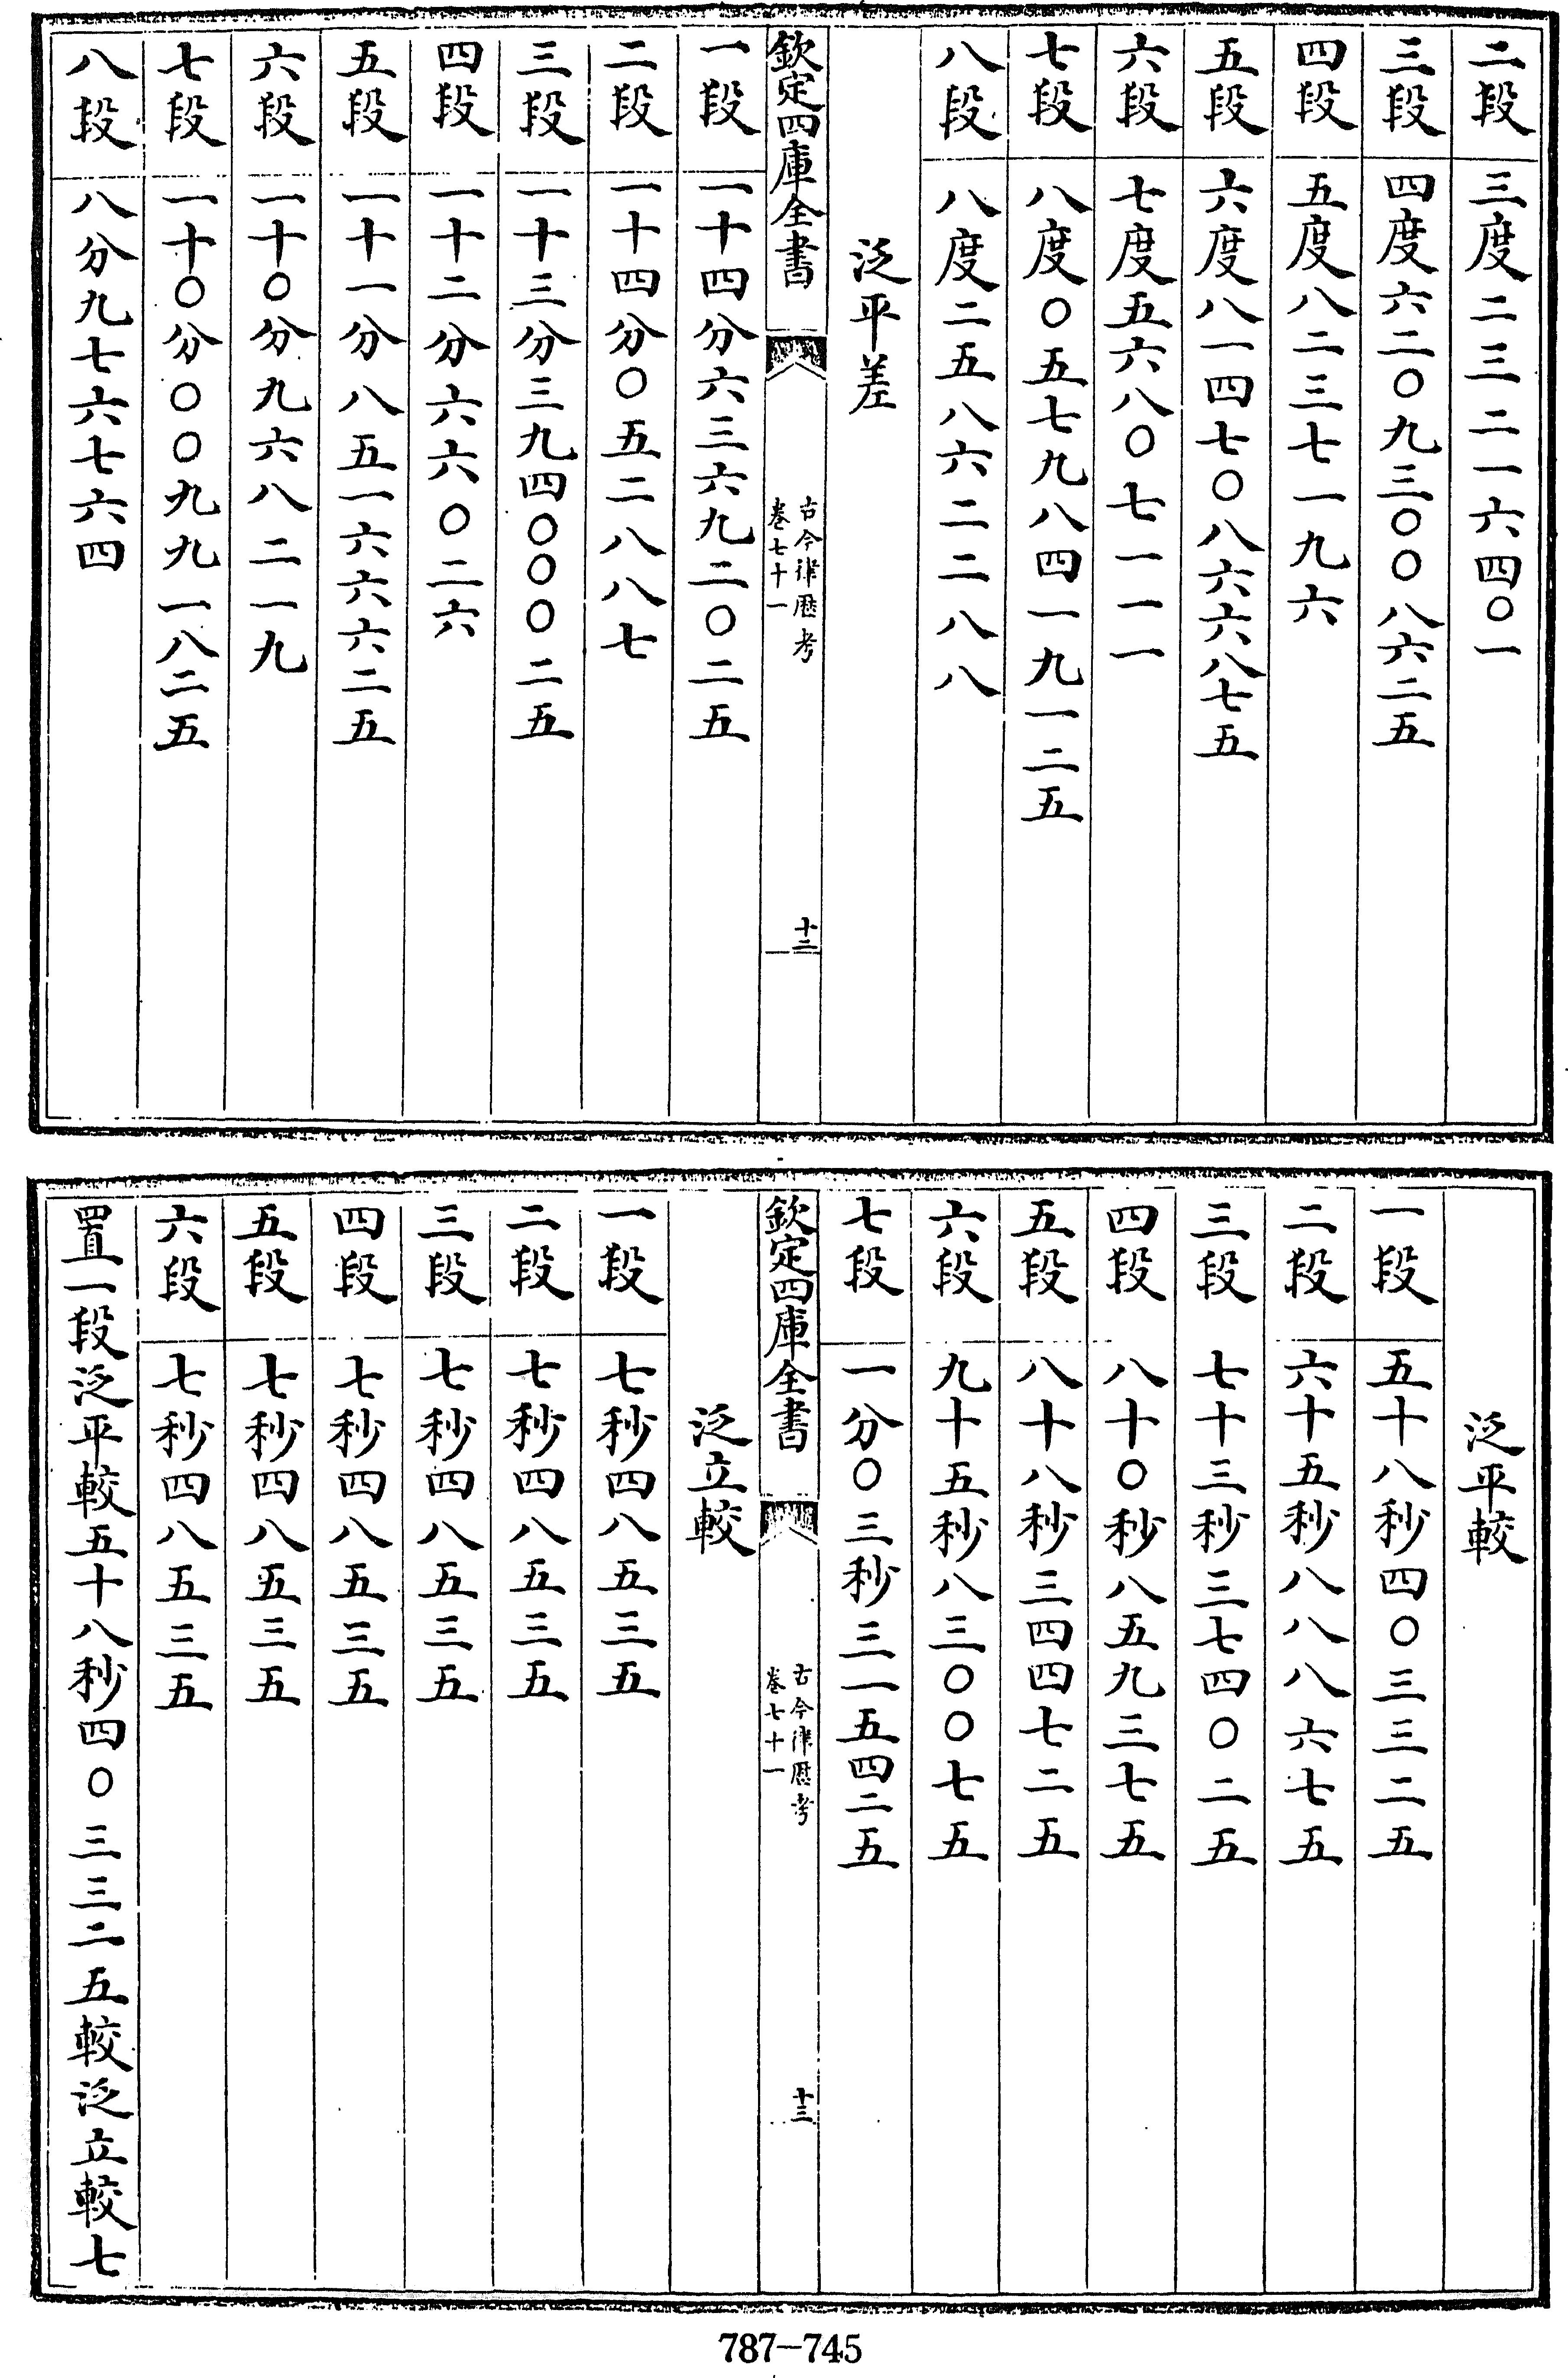 二段 三度二三二一六四〇一
三段 四度六二〇九三〇〇八六二五
四段 五度八二三七一九六
五段 六度八一四七〇八六六八七五
六段 七度五六八〇七一一一
七段 八度〇五七九八四一九一二五
八段 八度二五八六二二八八
泛平差
欽定四庫全書
古今律厯考
卷七十一
十二
一段 一十四分六三六九二〇二五
二段 一十四分〇五二八八七
三段 一十三分三九四〇〇〇二五
四段 一十二分六六〇二六
五段 一十一分八五一六六六二五
六段 一十〇分九六八二一九
七段 一十〇分〇〇九九一八二五
八段 八分九七六七六四
泛平較
一段 五十八秒四〇三三二五
二段 六十五秒八八八六七五
三段 七十三秒三七四〇二五
四段 八十〇秒八五九三七五
五段 八十八秒三四四七二五
六段 九十五秒八三〇〇七五
七段 一分〇三秒三一五四二五
欽定四庫全書
古今律厯考
卷七十一
十三
泛立較
一段 七秒四八五三五
二段 七秒四八五三五
三段 七秒四八五三五
四段 七秒四八五三五
五段 七秒四八五三五
六段 七秒四八五三五
置一段泛平較五十八秒四〇三三二五較泛立較七
787-745